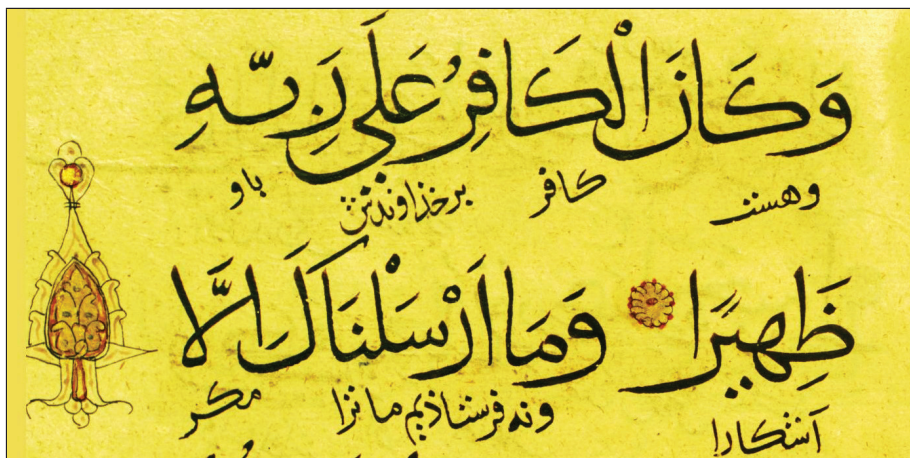 وَكَانَ الْكَافِرُ عَلَى رَبِّهِ
وهست کافر برخذاوندش باو
ظَهِيرًا وَمَا اَرْسَلْنَاكَ اِلَّا
آشکارا ونه فرستاذیم ما ترا مکر